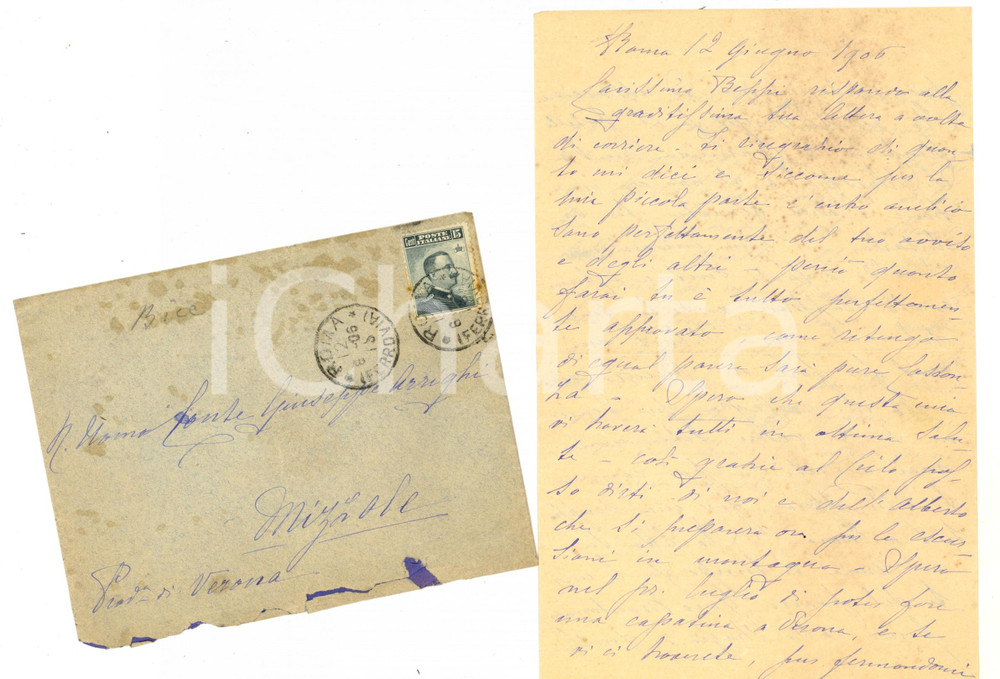 Bice
Cent. 15
POSTE
ITALIANE
ROMA
(FERROVIA)
12 6 06
N. Uomo Conte Giuseppe Arrighi
Mizzole
Prov. di Verona
iCharta
Roma 12 Giugno 1906
Carissimo Beppi rispondo alla
graditissima tua lettera a volta
di corriere. Ti ringrazio di quan-
to mi dici e siccome per la
mia piccola parte c'entro anch'io
sono perfettamente del tuo avviso
e degli altri - perciò quanto
farai tu è tutto perfettamen-
te approvato come ritengo
di egual parere sarà pure
Spero che questa mia
vi troverà tutti in ottima salu-
te - così grazie al Cielo pos-
so dirti di noi e dell'Alberto
che si preparerà ora per le escur-
sioni in montagna - Spero
nel pr. luglio di poter fare
una capatina a Verona, e se
vi ci troverete, pur fermandomi